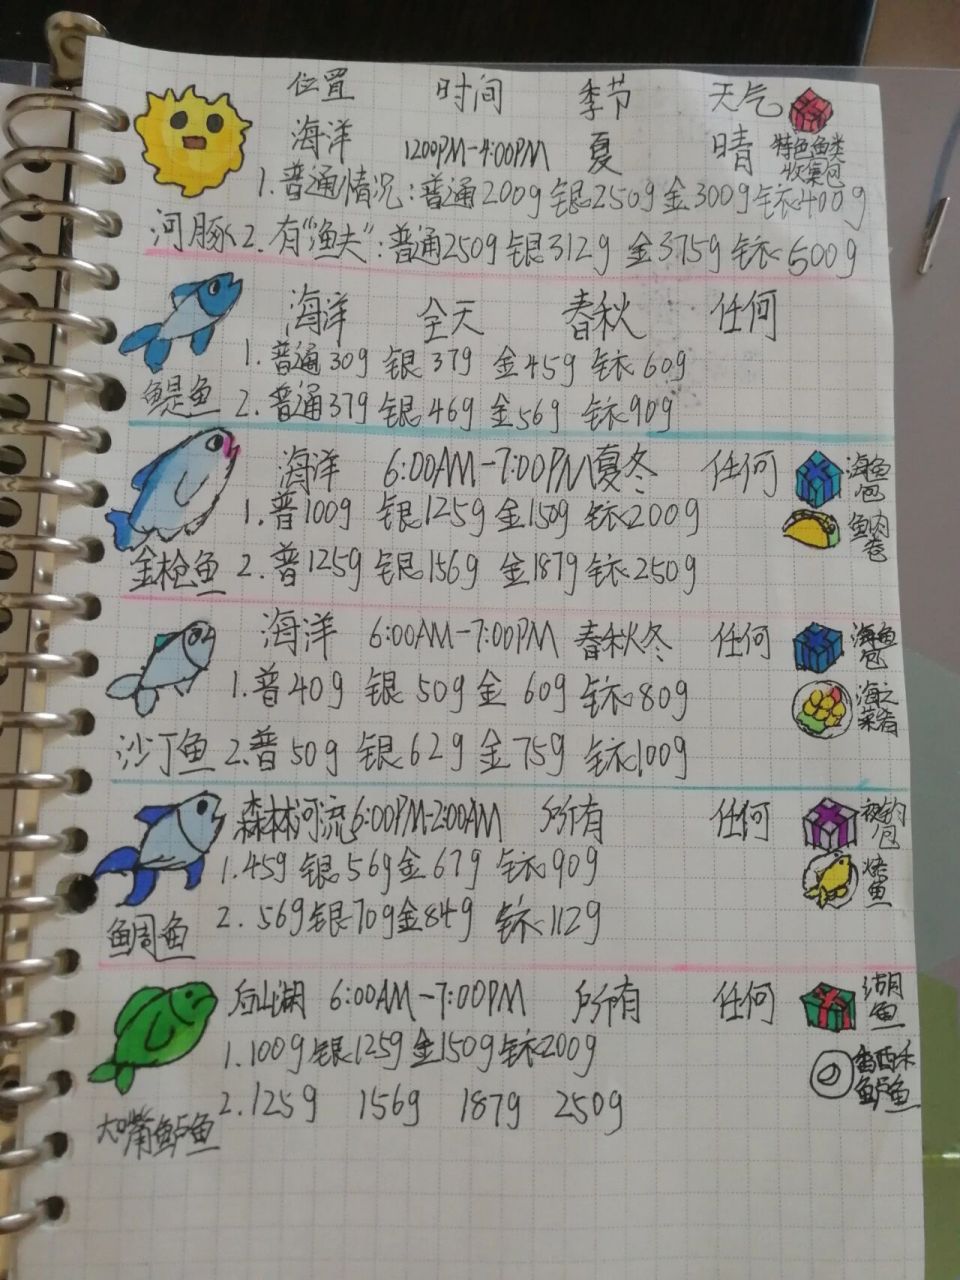 位置 时间 季节 天气
海洋 1200PM-4:00PM 夏 晴 特色鱼类收集包
1.普通情况:普通200g 银250g 金300g 铱400g
河豚 2.有"渔夫":普通250g 银312g 金375g 铱500g
海洋 全天 春秋 任何
1.普通30g 银37g 金45g 铱60g
鳀鱼 2.普通37g 银46g 金56g 铱90g
海洋 6:00AM-7:00PM 夏冬 任何 海鱼包
1.普100g 银125g 金150g 铱200g 鱼肉卷
金枪鱼 2.普125g 银156g 金187g 铱250g
海洋 6:00AM-7:00PM 春秋冬 任何 海鱼包
1.普40g 银50g 金60g 铱80g 海之菜肴
沙丁鱼 2.普50g 银62g 金75g 铱100g
森林河流 6:00PM-2:00AM 所有 任何 夜钓包
1.45g 银56g 金67g 铱90g 烤鱼
鲷鱼 2.56g 银70g 金84g 铱112g
后山湖 6:00AM-7:00PM 所有 任何 湖鱼
1.100g 银125g 金150g 铱200g 香酥鲈鱼
大嘴鲈鱼 2.125g 156g 187g 250g